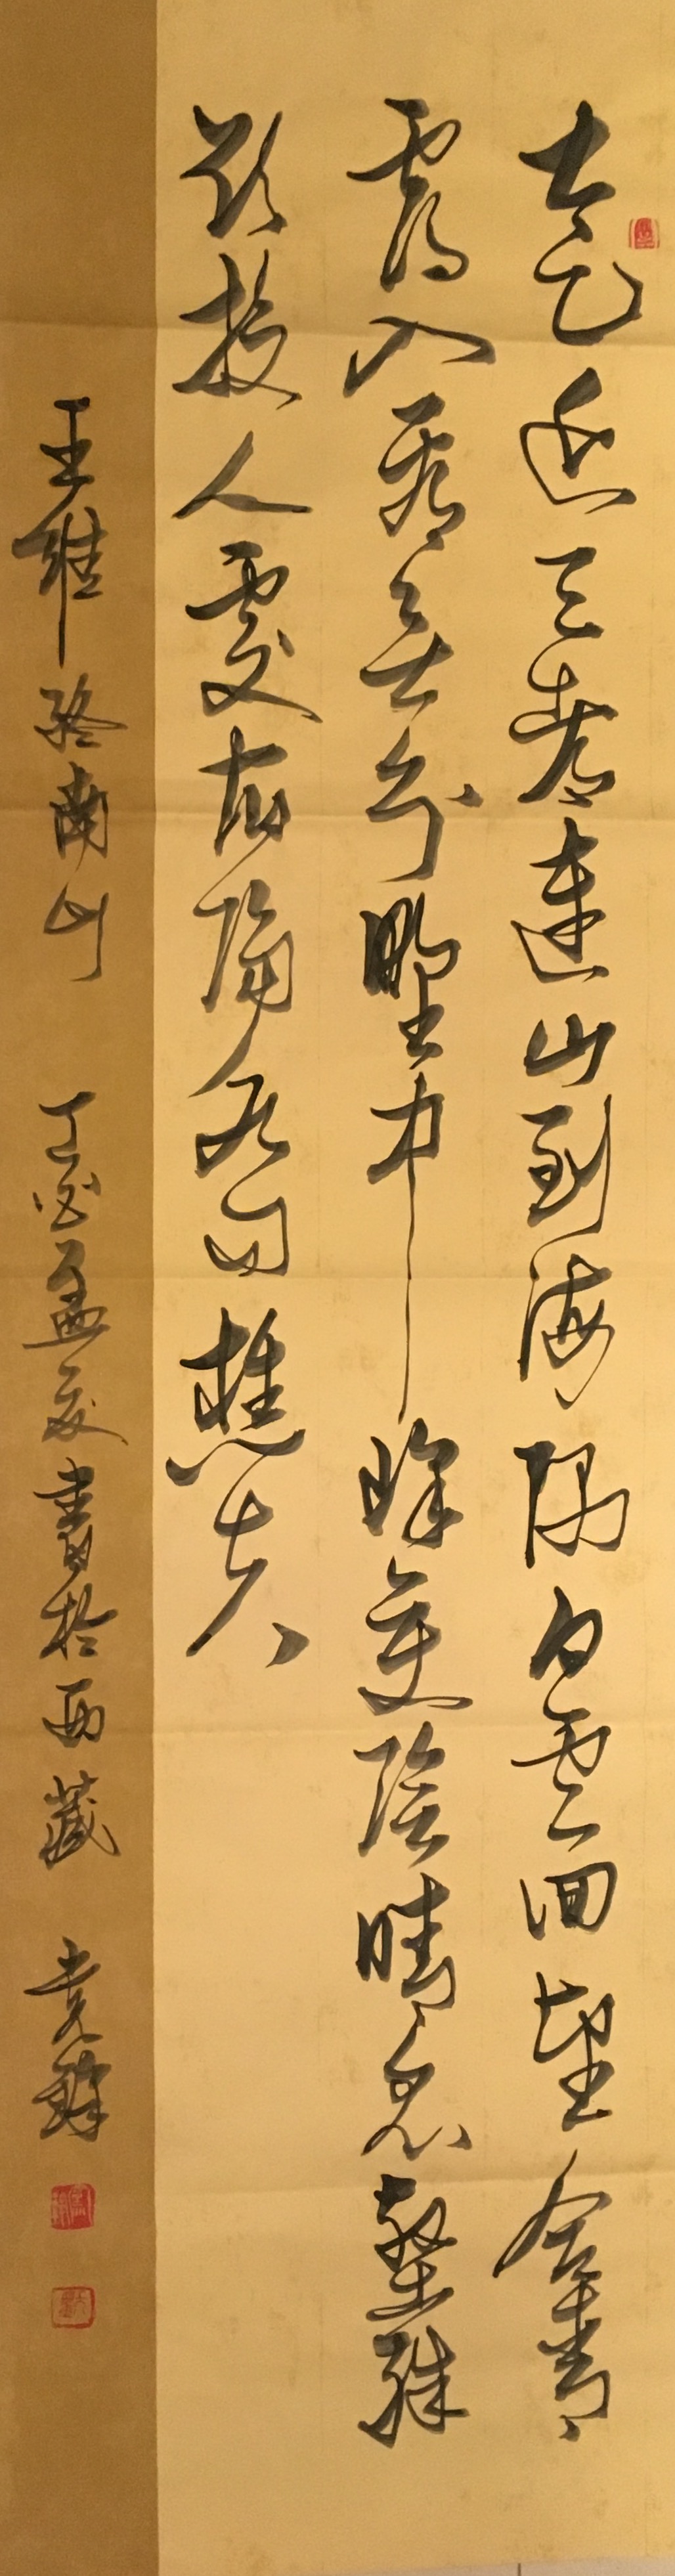 太乙近天都連山到海隅白雲回望合青
靄入看無分野中峰變陰晴眾壑殊
欲投人處宿隔水問樵夫
王維終南山 丁酉孟夏書於西藏